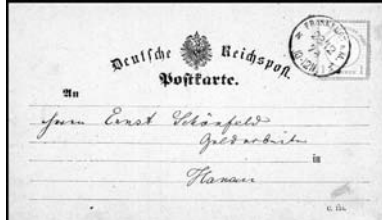 Deutsche Reichspost.
Postkarte.
An
Herrn Ernst Schönfeld
Goldarbeiter
in
Hanau